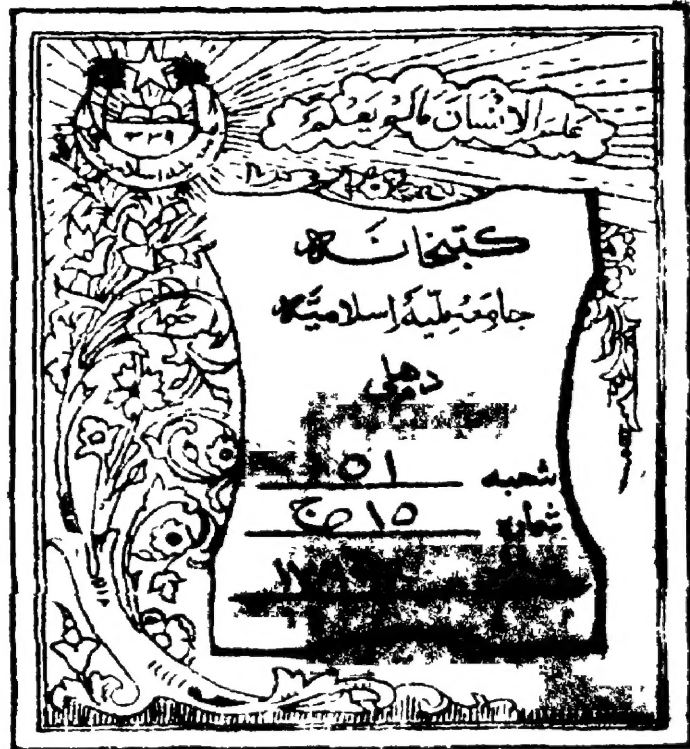 علم الانسان مالم یعلم
۱۳۳۹
کتبخانہ
جامعہ ملیہ اسلامیہ
دهلی
شعبہ ۵۱
شمارہ ۱۵ ج